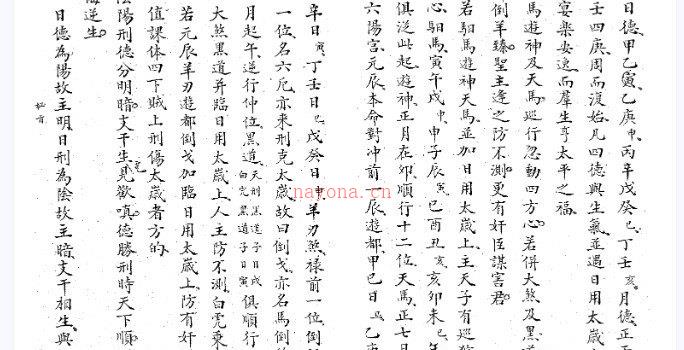 日德甲乙寅乙庚申丙辛戊癸巳丁壬亥月德正五
壬四庚周而復始凡四德與生氣並遇日用太歲
宴樂安逸而羣生亨太平之福
馬遊神及天馬巡行忽動四方心若併大煞及黑道
倒羊臻聖主逢之防不測更有奸臣謀害君
若馹馬遊神天馬並加日用太歲上主天子有巡狩
心馹馬寅午戌申申子辰寅巳酉丑亥亥卯未巳年
俱泛此起遊神正月在卯順行十二位天馬正七
六陽宮元辰本命對冲前一辰遊都甲巳日丑乙庚
辛日寅丁壬日巳戊癸日申羊刃煞禄前一位倒
一位名六厄亦來刑克太歲故曰倒戈亦名馬倒
月起午逆行仲位黑道天刑黑道子日戌白虎黑道子日寅俱順行
大煞黑道并臨日用太歲上人主防不測白虎乘
若元辰羊刃遊都倒戈加臨日用太歲上防有奸
值課体四下賊上刑傷太歲者方的
陰陽刑德分明暗支干生克見歡嗔德勝刑時天下順
逆生
日德為陽故主明日刑為陰故主暗支干相生與
nayona.cn